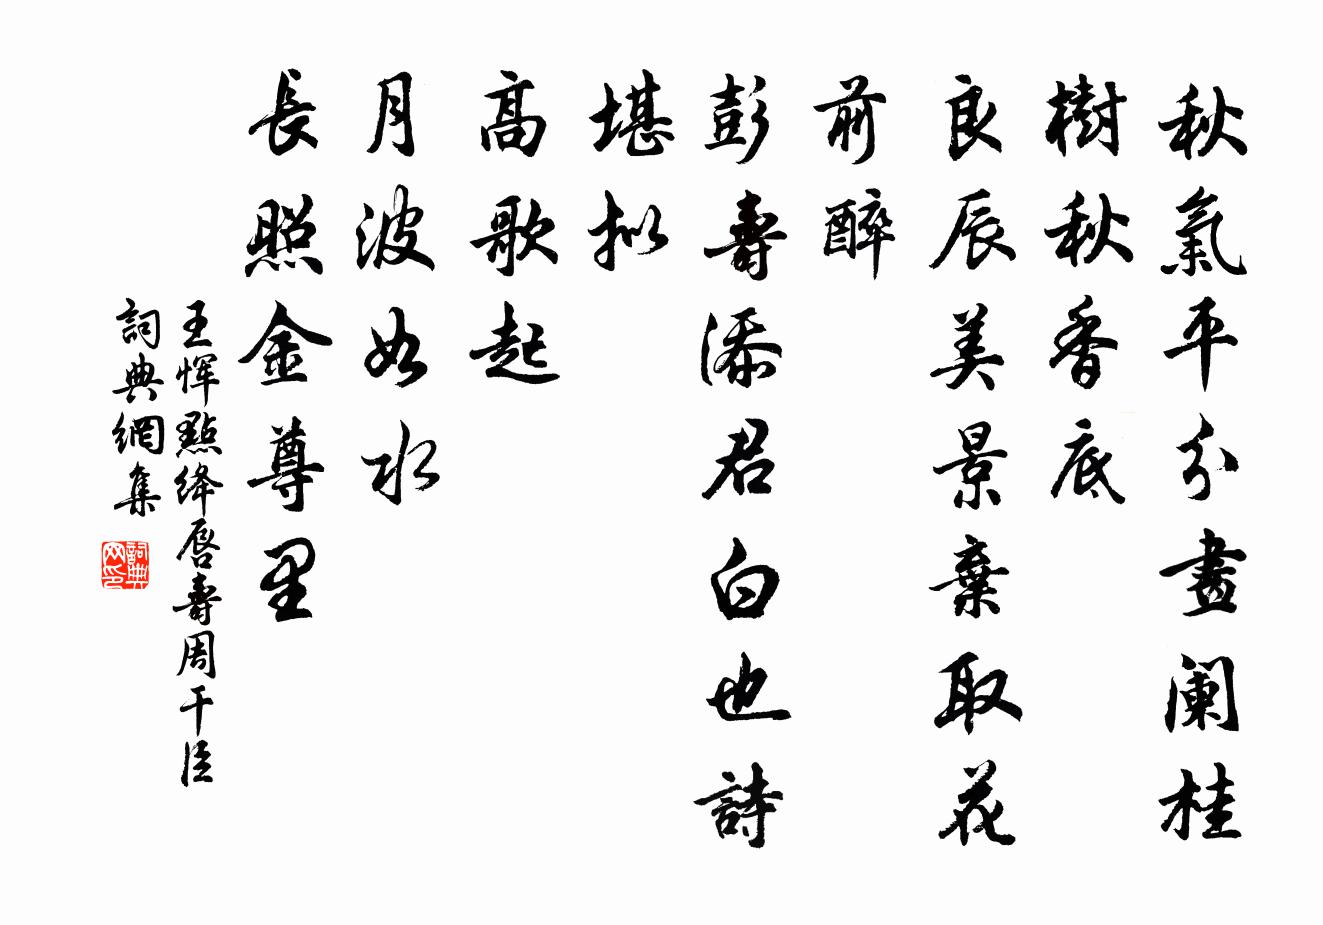 秋氣平分畫闌桂
樹秋香底
良辰美景棄取花
前醉
彭壽添君白也詩
堪拟
高歌起
月波如水
長照金尊里
王恽點絳唇壽周干臣
詞典網集
詞典网印